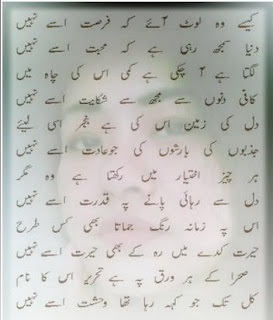 کیسے وہ لوٹ آئے کہ فرصت اسے نہیں
دنیا سمجھ رہی ہے کہ محبت اسے نہیں
لگتا ہے آ چکی ہے کمی اس کی چاہ میں
کافی دنوں سے مجھ سے شکایت اسے نہیں
دل کی زمین اس کی ہے بنجر اسی لیئے
جذبوں کی بارشوں کی جوعادت اسے نہیں
ہر چیز اختیار میں رکھتا ہے وہ مگر
دل سے رہائی پانے پہ قدرت اسے نہیں
اس پہ زمانہ رنگ جماتا بھی کس طرح
حیرت کدے میں رہ کے بھی حیرت اسے نہیں
صحرا کے ہر ورق پہ ہے تحریر اس کا نام
کل تک جو کہہ رہا تھا وحشت اسے نہیں